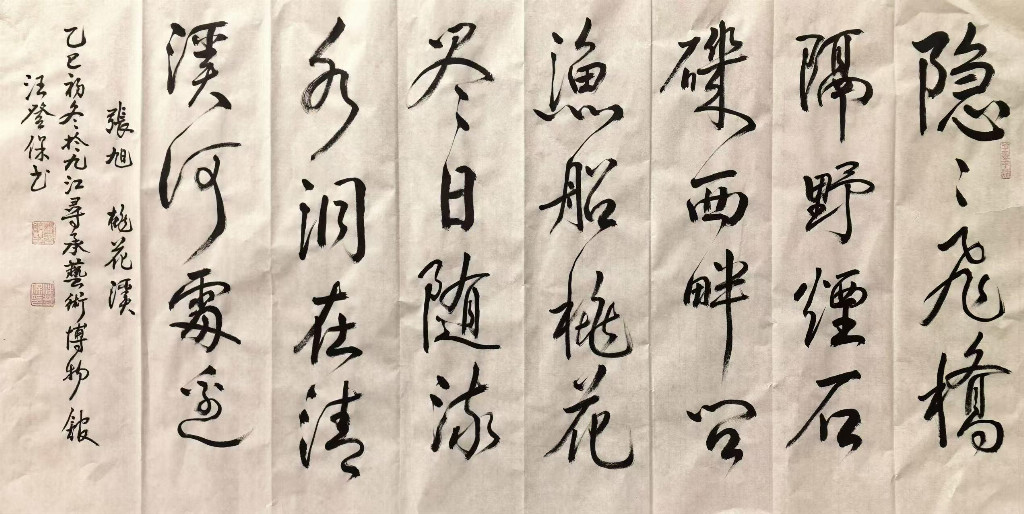 隐〻飛橋
隔野煙石
磯西畔问
漁船桃花
尽日随流
水洞在清
溪何處邊
張旭 桃花溪
乙巳初冬於九江尋承藝術博物館
汪登保书